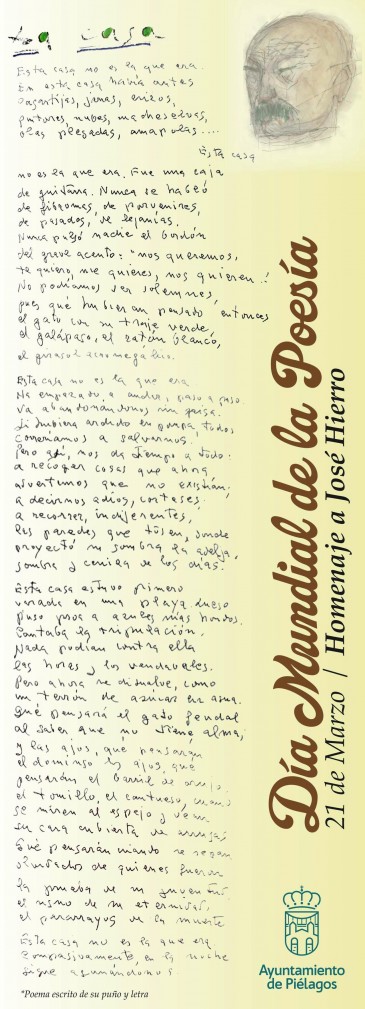 La casa
Esta casa no es la que era.
En esta casa había antes
lagartijas, jarras, erizos,
pintores, nubes, madreselvas,
olas plegadas, amapolas....
Esta casa
no es la que era. Fue una caja
de guitarra. Nunca se habló
de fibromas, de porvenires,
de pasados, de lejanías.
Nunca pulsó nadie el bordón
del grave acento: "nos queremos,
te quiero, me quieres, nos quieren".
No podíamos ser solemnes,
pues qué hubieran pensado entonces
el gato con su traje verde,
el galápago, el ratón blanco,
el girasol acromegálico.
Esta casa no es la que era
Ha empezado a andar, paso a paso
Va abandonándonos sin prisa.
Si hubiera ardido en pompa, todos
correríamos a salvarnos.
Pero así, nos da tiempo a todo:
a recoger cosas que ahora
advertimos que no existían;
a decirnos adiós, corteses;
a recorrer, indiferentes,
las paredes que tosen, donde
proyectó su sombra la adelfa,
sombra y ceniza de los días.
Esta casa estuvo primero
varada en una playa. Luego
puso proa a azules más hondos.
Cantaba la tripulación.
Nada podían contra ella
las horas y los vendavales.
Pero ahora se disuelve, como
un terrón de azúcar en agua.
Qué pensará el gato feudal
al saber que no tiene alma;
y los ajos, qué pensarán
el domingo los ajos, qué
pensarán el barril de orujo,
el tomillo, el cantueso, cuando
se miren al espejo y vean
su cara cubierta de arrugas
Qué pensarán cuando se sepan
olvidados de quienes fueron
la prueba de su juventud,
el signo de su eternidad,
el pararrayos de la muerte
Esta casa no es la que era
Compasivamente, en la noche
sigue acunándonos
*Poema escrito de su puño y letra
Día Mundial de la Poesía
21 de Marzo / Homenaje a José Hierro
Ayuntamiento
de Piélagos